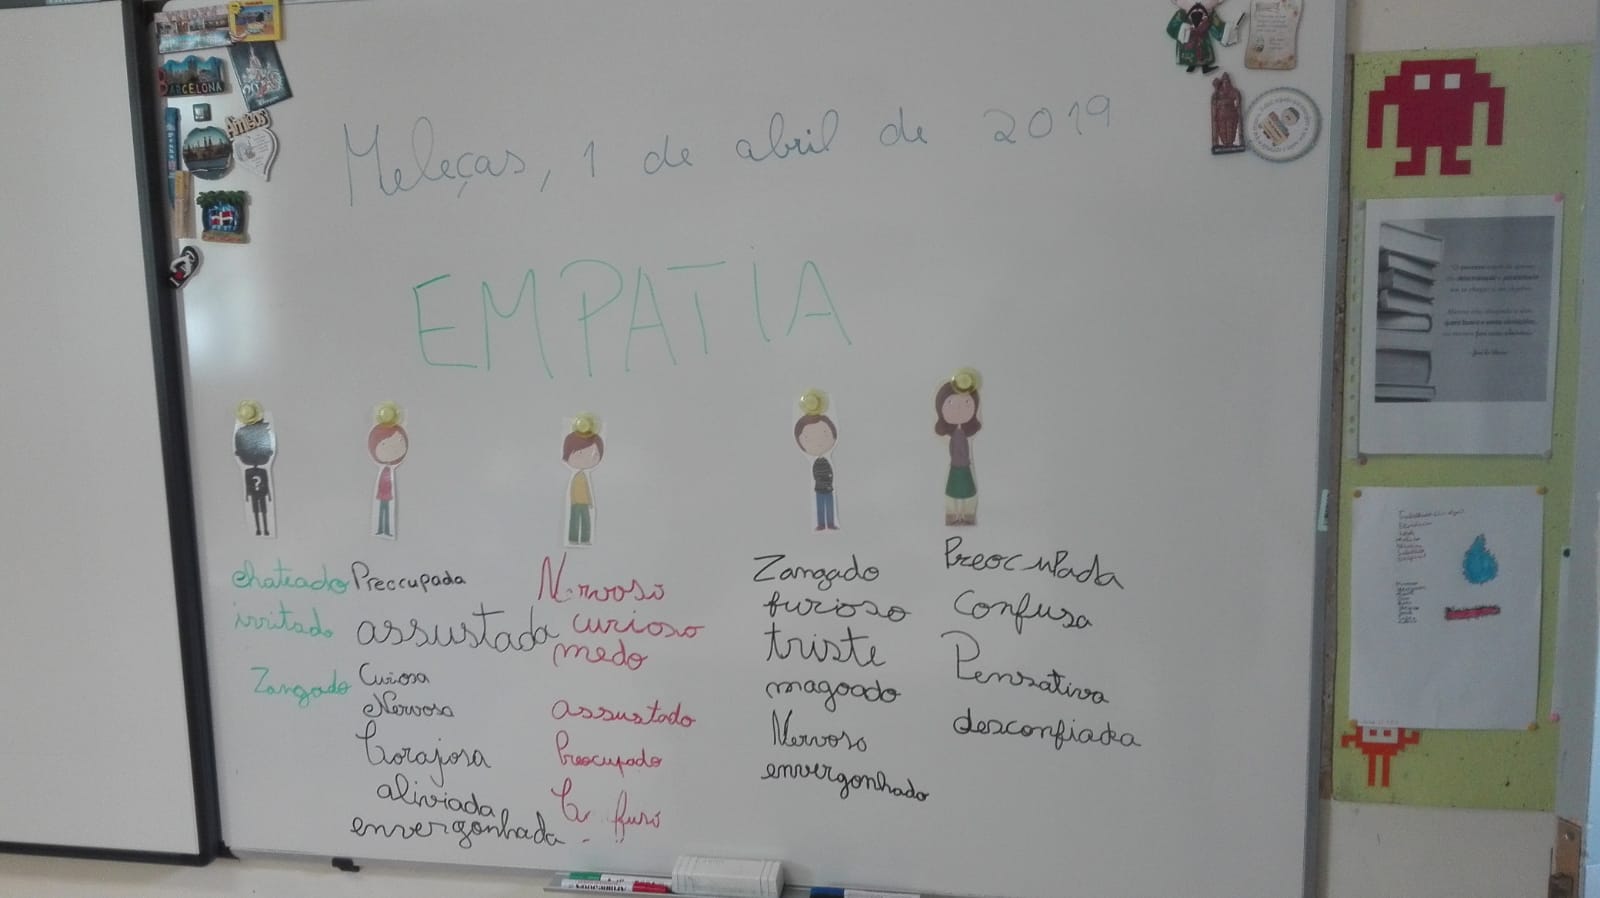 BARCELONA
Amigos
Meleças, 1 de abril de 2019
EMPATIA
?
chateado
irritado
Zangado
Preccupada
assustada
Curiosa
Nervosa
Corajosa
aliviada
envergonhada
Nervoso
curioso
medo
assustado
Preocupado
Zangado
furioso
triste
magoado
Nervoso
envergonhado
Preocupada
Confusa
Pensativa
desconfiada